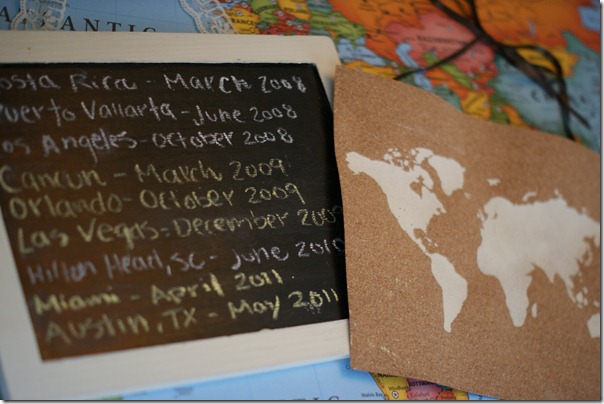 ATLANTIC
Costa Rica - March 2008
Puerto Vallarta - June 2008
Los Angeles - October 2008
Cancun - March 2009
Orlando - October 2009
Las Vegas - December 2009
Hilton Head, SC - June 2010
Miami - April 2011
Austin, TX - May 2011